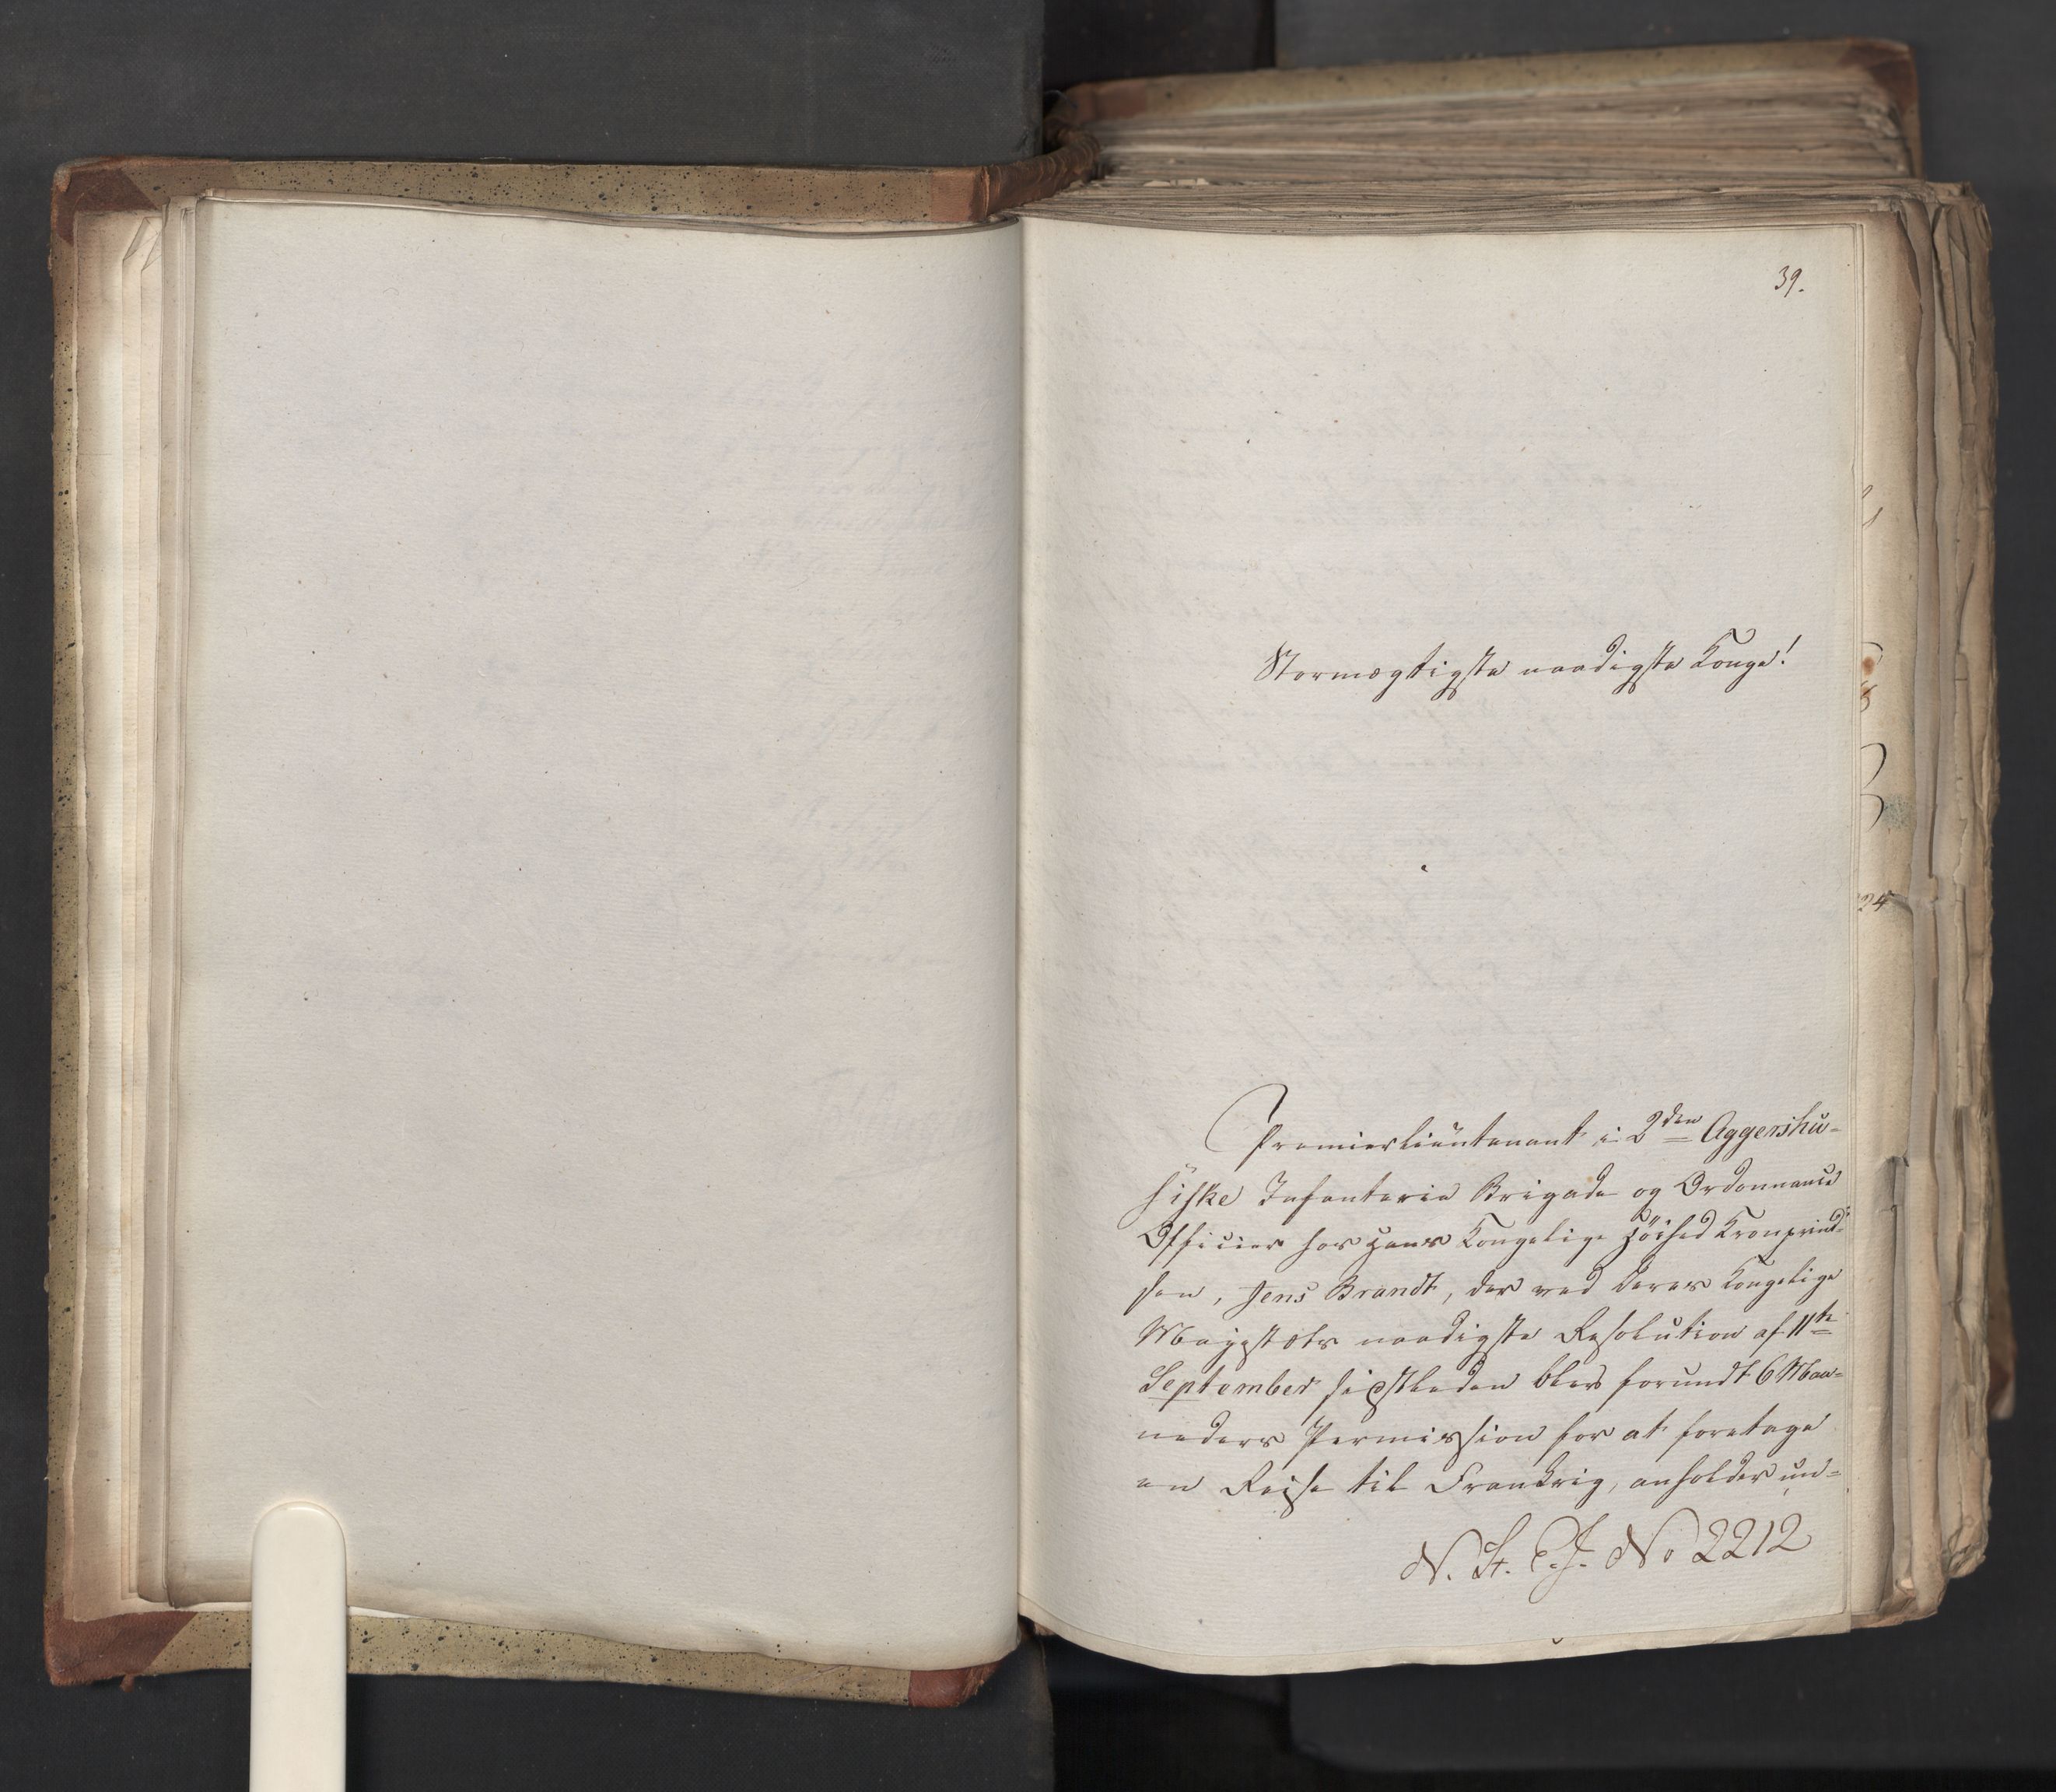 39.
Stormægtigste naadigste Konge!
Premierlieutenant i 2den Aggershu-
siske Infanterie Brigade og Ordonnance
Officier hos Hans Kongelige Höihed Kronprind-
sen, Jens Brandt, der ved Deres Kongelige
Majestæts naadigste Resolution af 11te
September sidstleden blev forundt 6 Maa-
neders Permission for at foretage
en Reise til Frankrig, anholder un-
N. St. E. J. No 2212
24